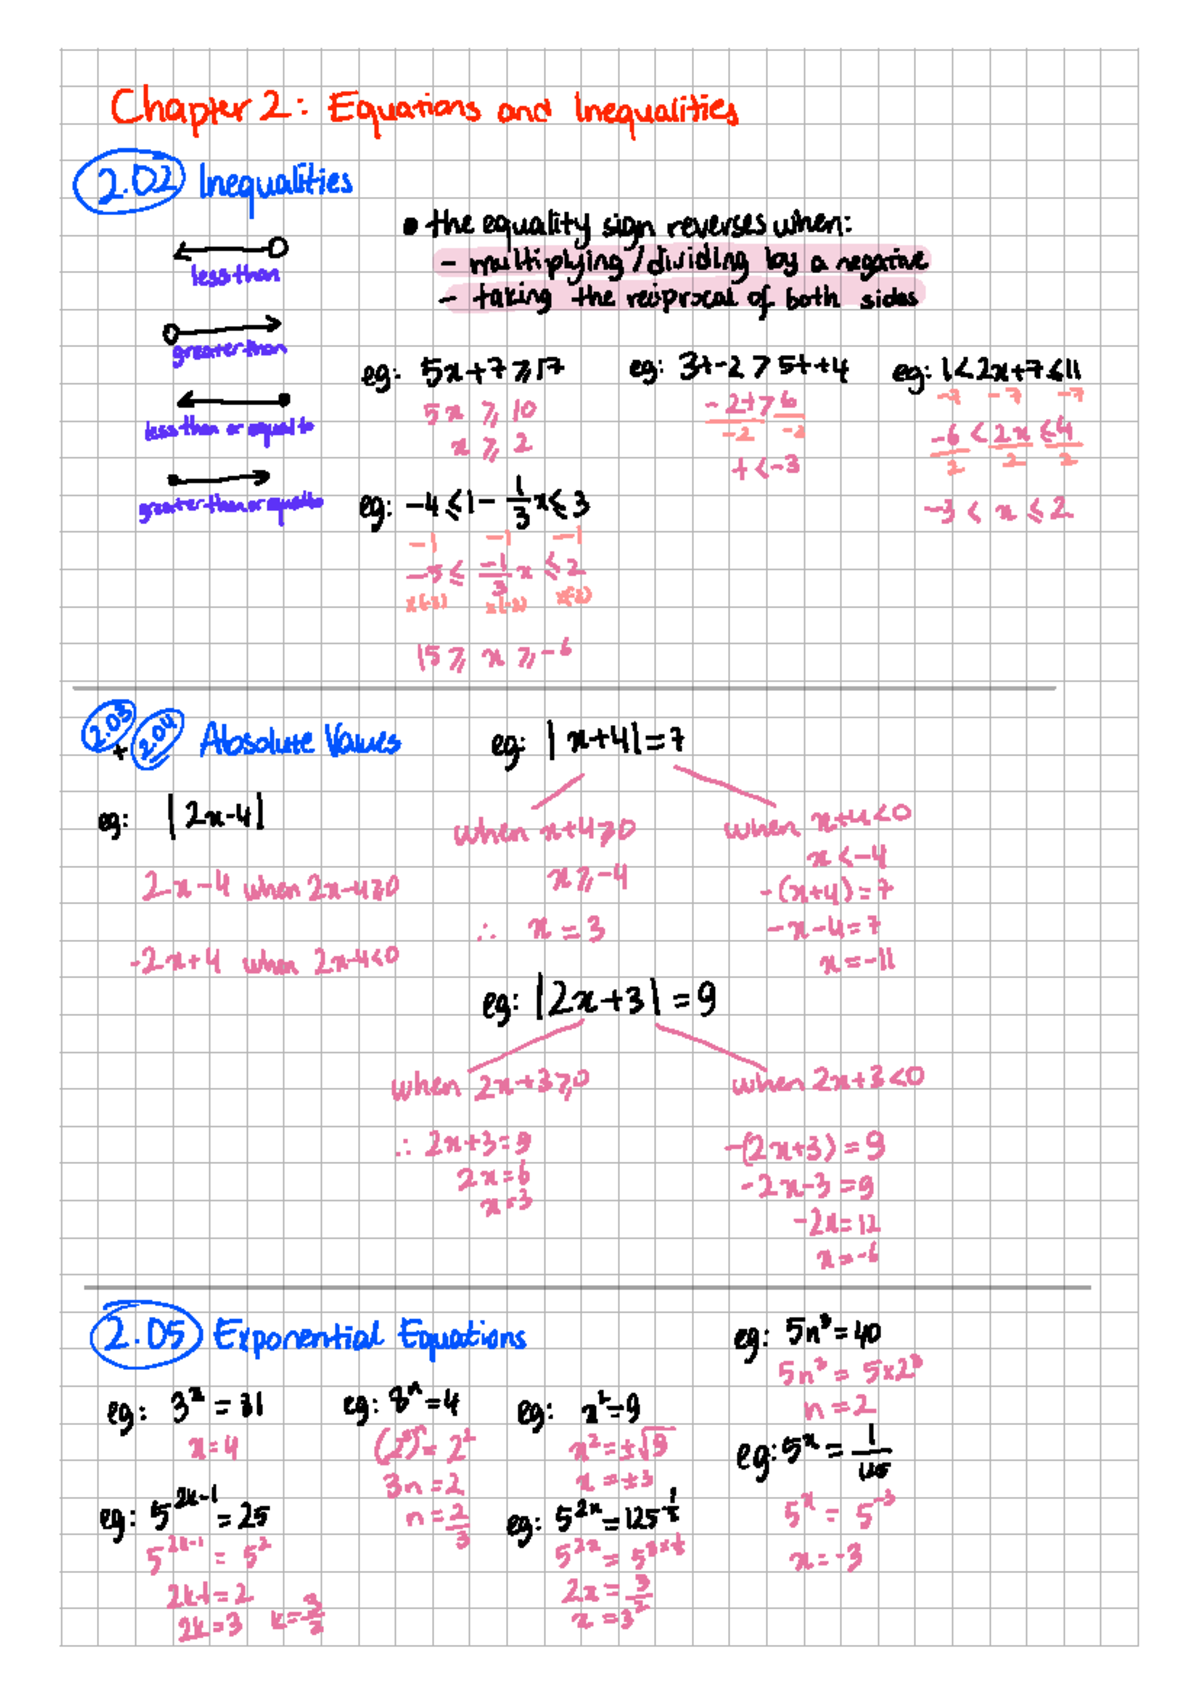 Chapter 2: Equations and Inequalities
2.02 Inequalities
less than
greater than
less than or equal to
greater than or equal to
• the equality sign reverses when:
- multiplying / dividing by a negative
- taking the reciprocal of both sides
eg: 5x+7 ⩾ 17
5x ⩾ 10
x ⩾ 2
eg: 3t-2 > 5t+4
-2t > 6
-2 -2
t < -3
eg: 1 < 2x+7 ⩽ 11
-7 -7 -7
-6 < 2x ⩽ 4
2 2 2
-3 < x ⩽ 2
eg: -4 ⩽ 1 - 1/3 x ⩽ 3
-1 -1 -1
-5 ⩽ -1/3 x ⩽ 2
x(-3) x(-3) x(-3)
15 ⩾ x ⩾ -6
2.03 + 2.04 Absolute Values
eg: |2x-4|
2x-4 when 2x-4⩾0
-2x+4 when 2x-4<0
eg: |x+4| = 7
when x+4⩾0
x ⩾ -4
∴ x = 3
when x+4<0
x < -4
-(x+4) = 7
-x-4 = 7
x = -11
eg: |2x+3| = 9
when 2x+3⩾0
∴ 2x+3 = 9
2x = 6
x = 3
when 2x+3<0
-(2x+3) = 9
-2x-3 = 9
-2x = 12
x = -6
2.05 Exponential Equations
eg: 3ˣ = 81
x = 4
eg: 8ⁿ = 4
(2³)ⁿ = 2²
3n = 2
n = 2/3
eg: x² = 9
x² = ±√9
x = ±3
eg: 5n³ = 40
5n³ = 5×2³
n = 2
eg: 5ˣ = 1/125
5ˣ = 5⁻³
x = -3
eg: 5^(2k-1) = 25
5^(2k-1) = 5²
2k-1 = 2
2k = 3 k = 3/2
eg: 5^(2x) = 125^(1/2)
5^(2x) = 5^(3×1/2)
2x = 3/2